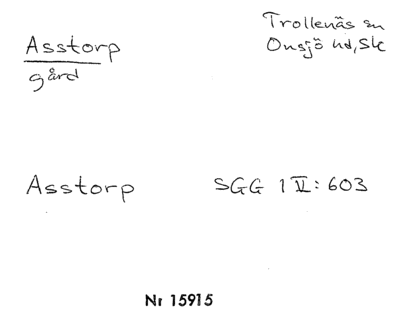 Asstorp
gård
Trollenäs sn
Onsjö hd, Sk
Asstorp SGG 1 II: 603
Nr 15915